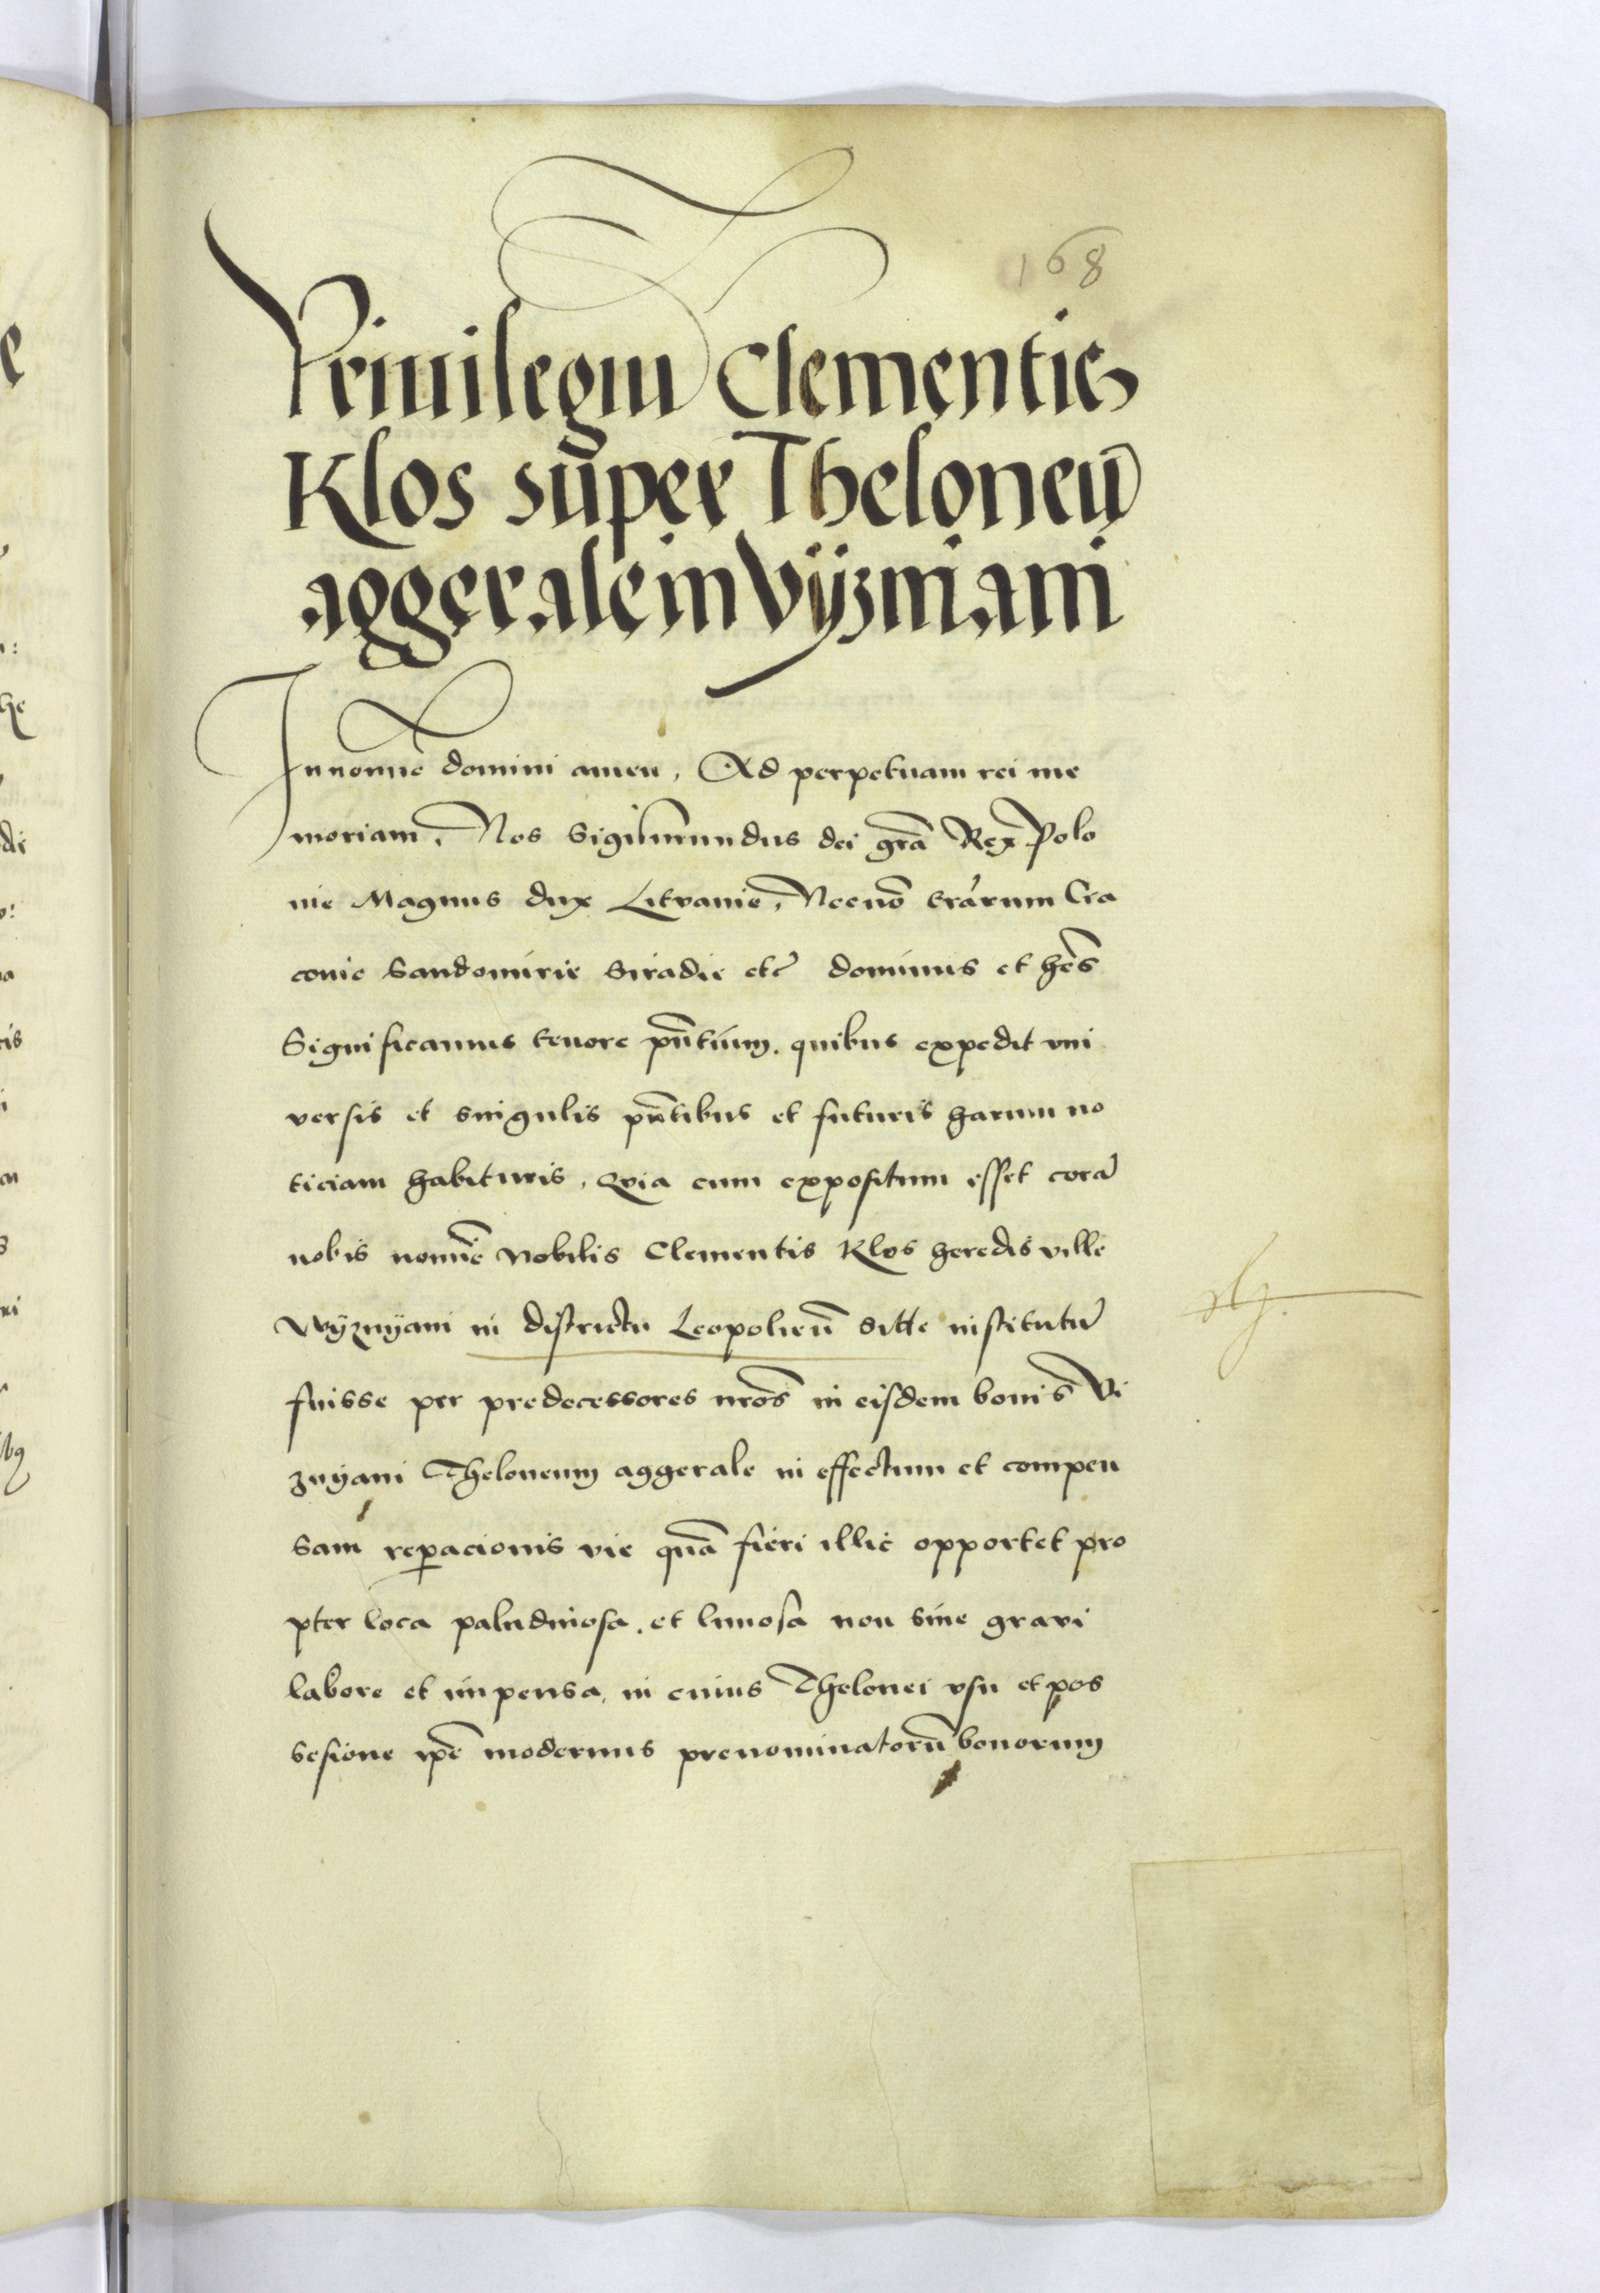 168
Priuilegiu Clementis
Klos super Theloneū
aggerale in Vÿzniani
In nomīe domini amen, Ad perpetuam rei me
moriam, Nos Sigismundus dei grā Rex Polo
nie Magnus dux Litvanie, Necnō trārum Cra
covie Sandomirie Siradie etc̄ dominus et hēs
Significamus tenore pn̄tium. quibus expedit vni
versis et singulis pn̄tibus et futuris harum no
ticiam habituris, Qvia cum expositum esset corā
nobis nomīe Nobilis Clementis Klos heredis ville
Wÿznÿani in districtu Leopolien̄ sitte institutū
fuisse per predecessores nrōs in eisdem bonis Vi
znÿani Theloneum aggerale in effectum et compen
sam reꝑacionis vie quā fieri illic opportet pro
pter loca paludinosa, et limosa non sine gravi
labore et impensa, in cuius Thelonei vsu et pos
sesione ip̄e modernus prenominatorū bonorum